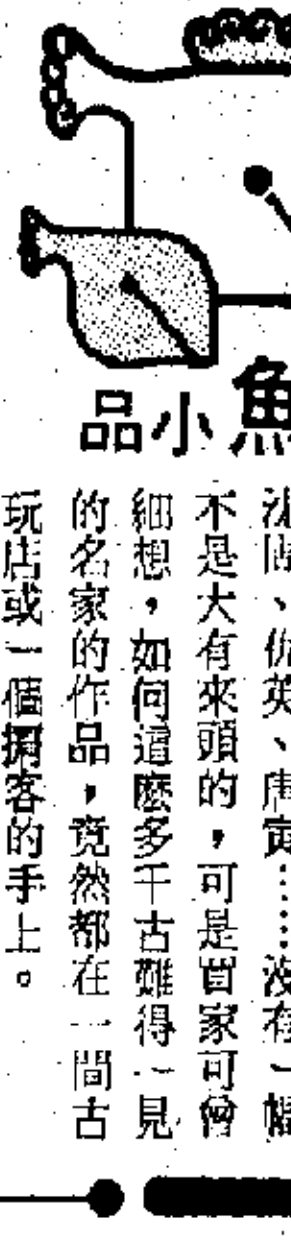 魚小品
沈周、仇英、唐寅……沒有一幅
不是大有來頭的，可是買家可曾
細想，如何這麼多千古難得一見
的名家的作品，竟然都在一間古
玩店或一個掮客的手上。